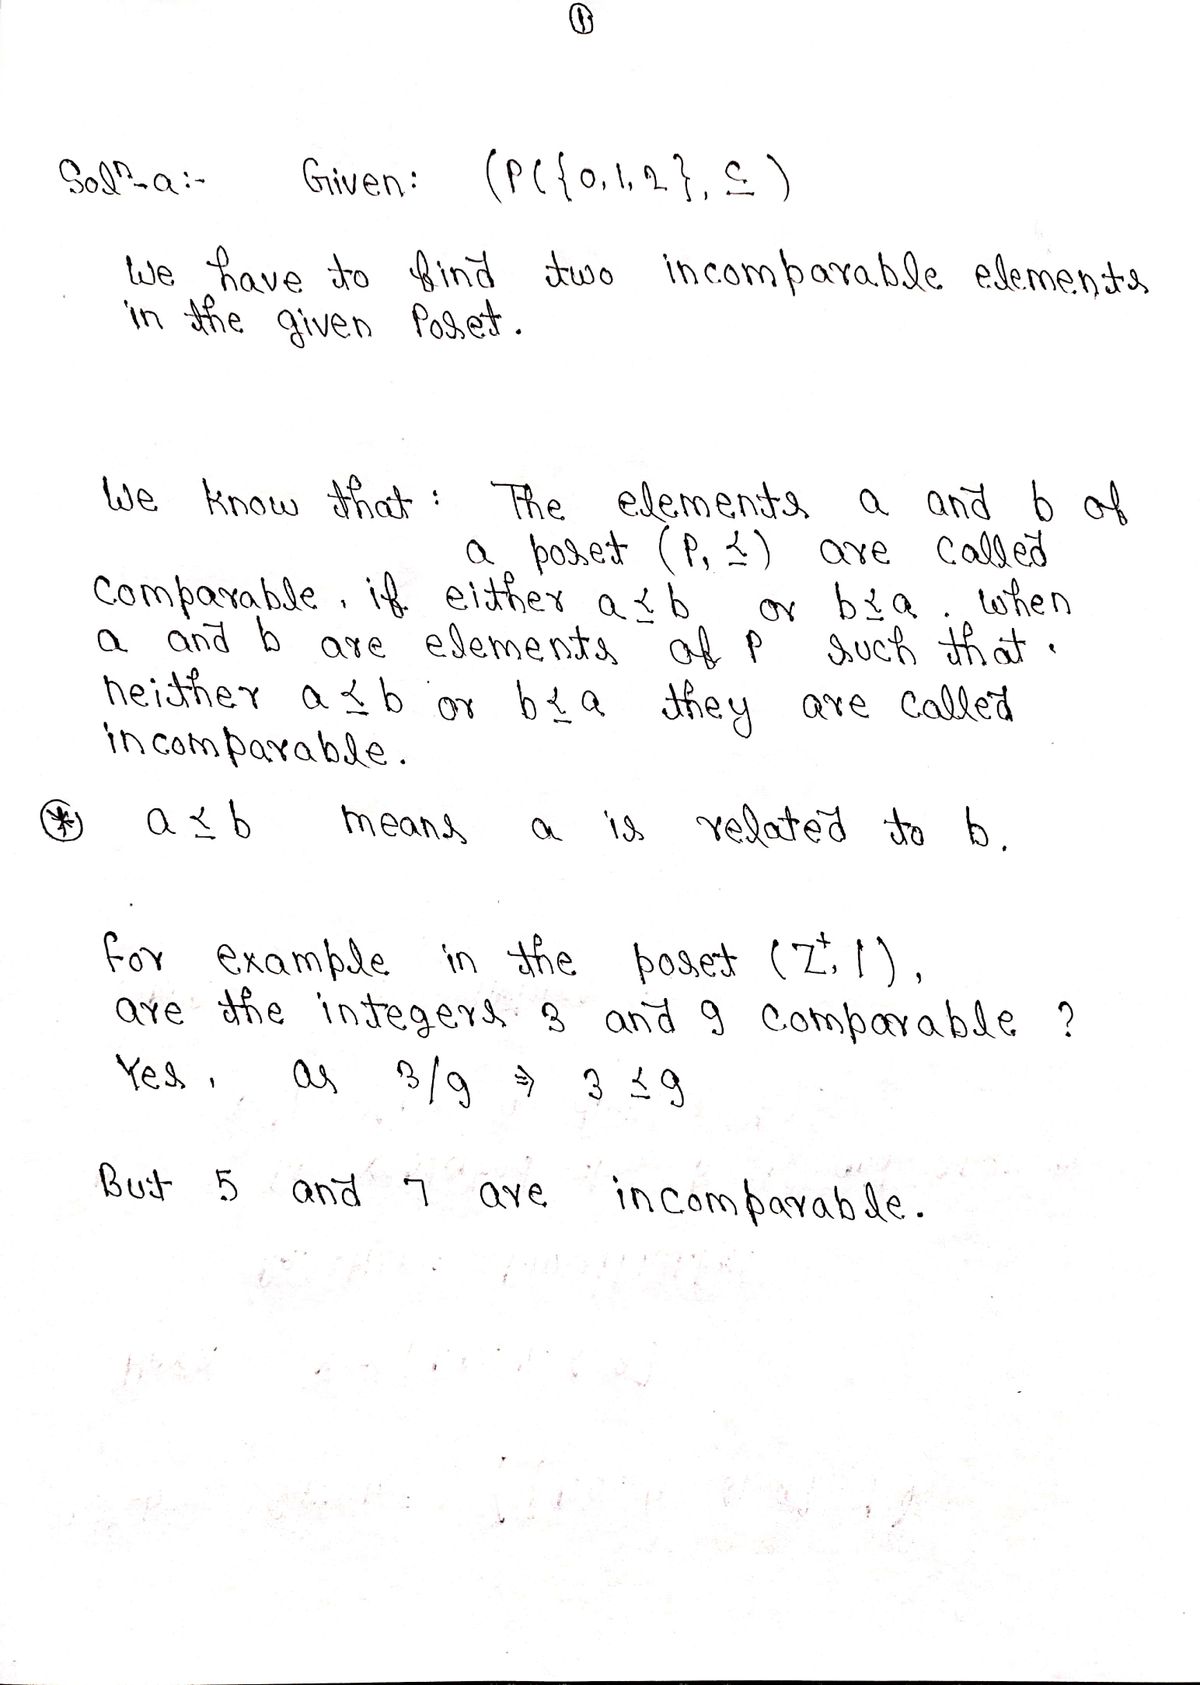 ①
Solⁿ-a:- Given: (P({0,1,2}, ⊆)
We have to find two incomparable elements
in the given Poset.
We know that: The elements a and b of
a poset (P, ≼) are called
comparable, if either a≼b or b≼a. When
a and b are elements of P such that.
neither a≼b or b≼a they are called
incomparable.
⊛ a≼b means a is related to b.
For example in the poset (Z⁺, |),
are the integers 3 and 9 comparable ?
Yes, as 3/9 ⇒ 3≼9
But 5 and 7 are incomparable.